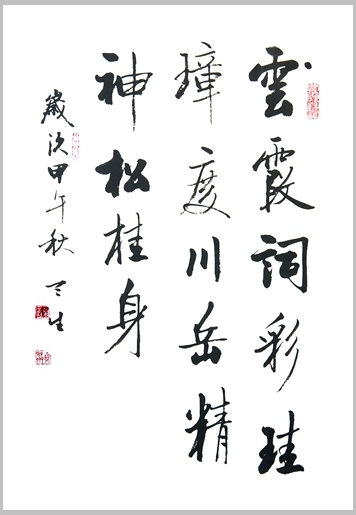 雲霞詞彩珪
璋度川岳精
神松桂身
歲次甲午秋天生